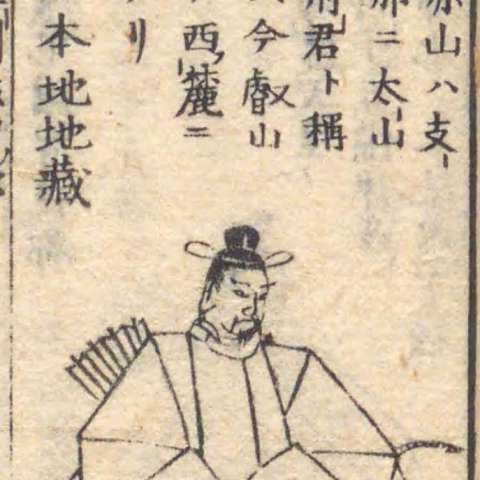 赤山ハ支
那ニ太山
府君ト稱
今睿山
西麓ニ
リ
本地地藏